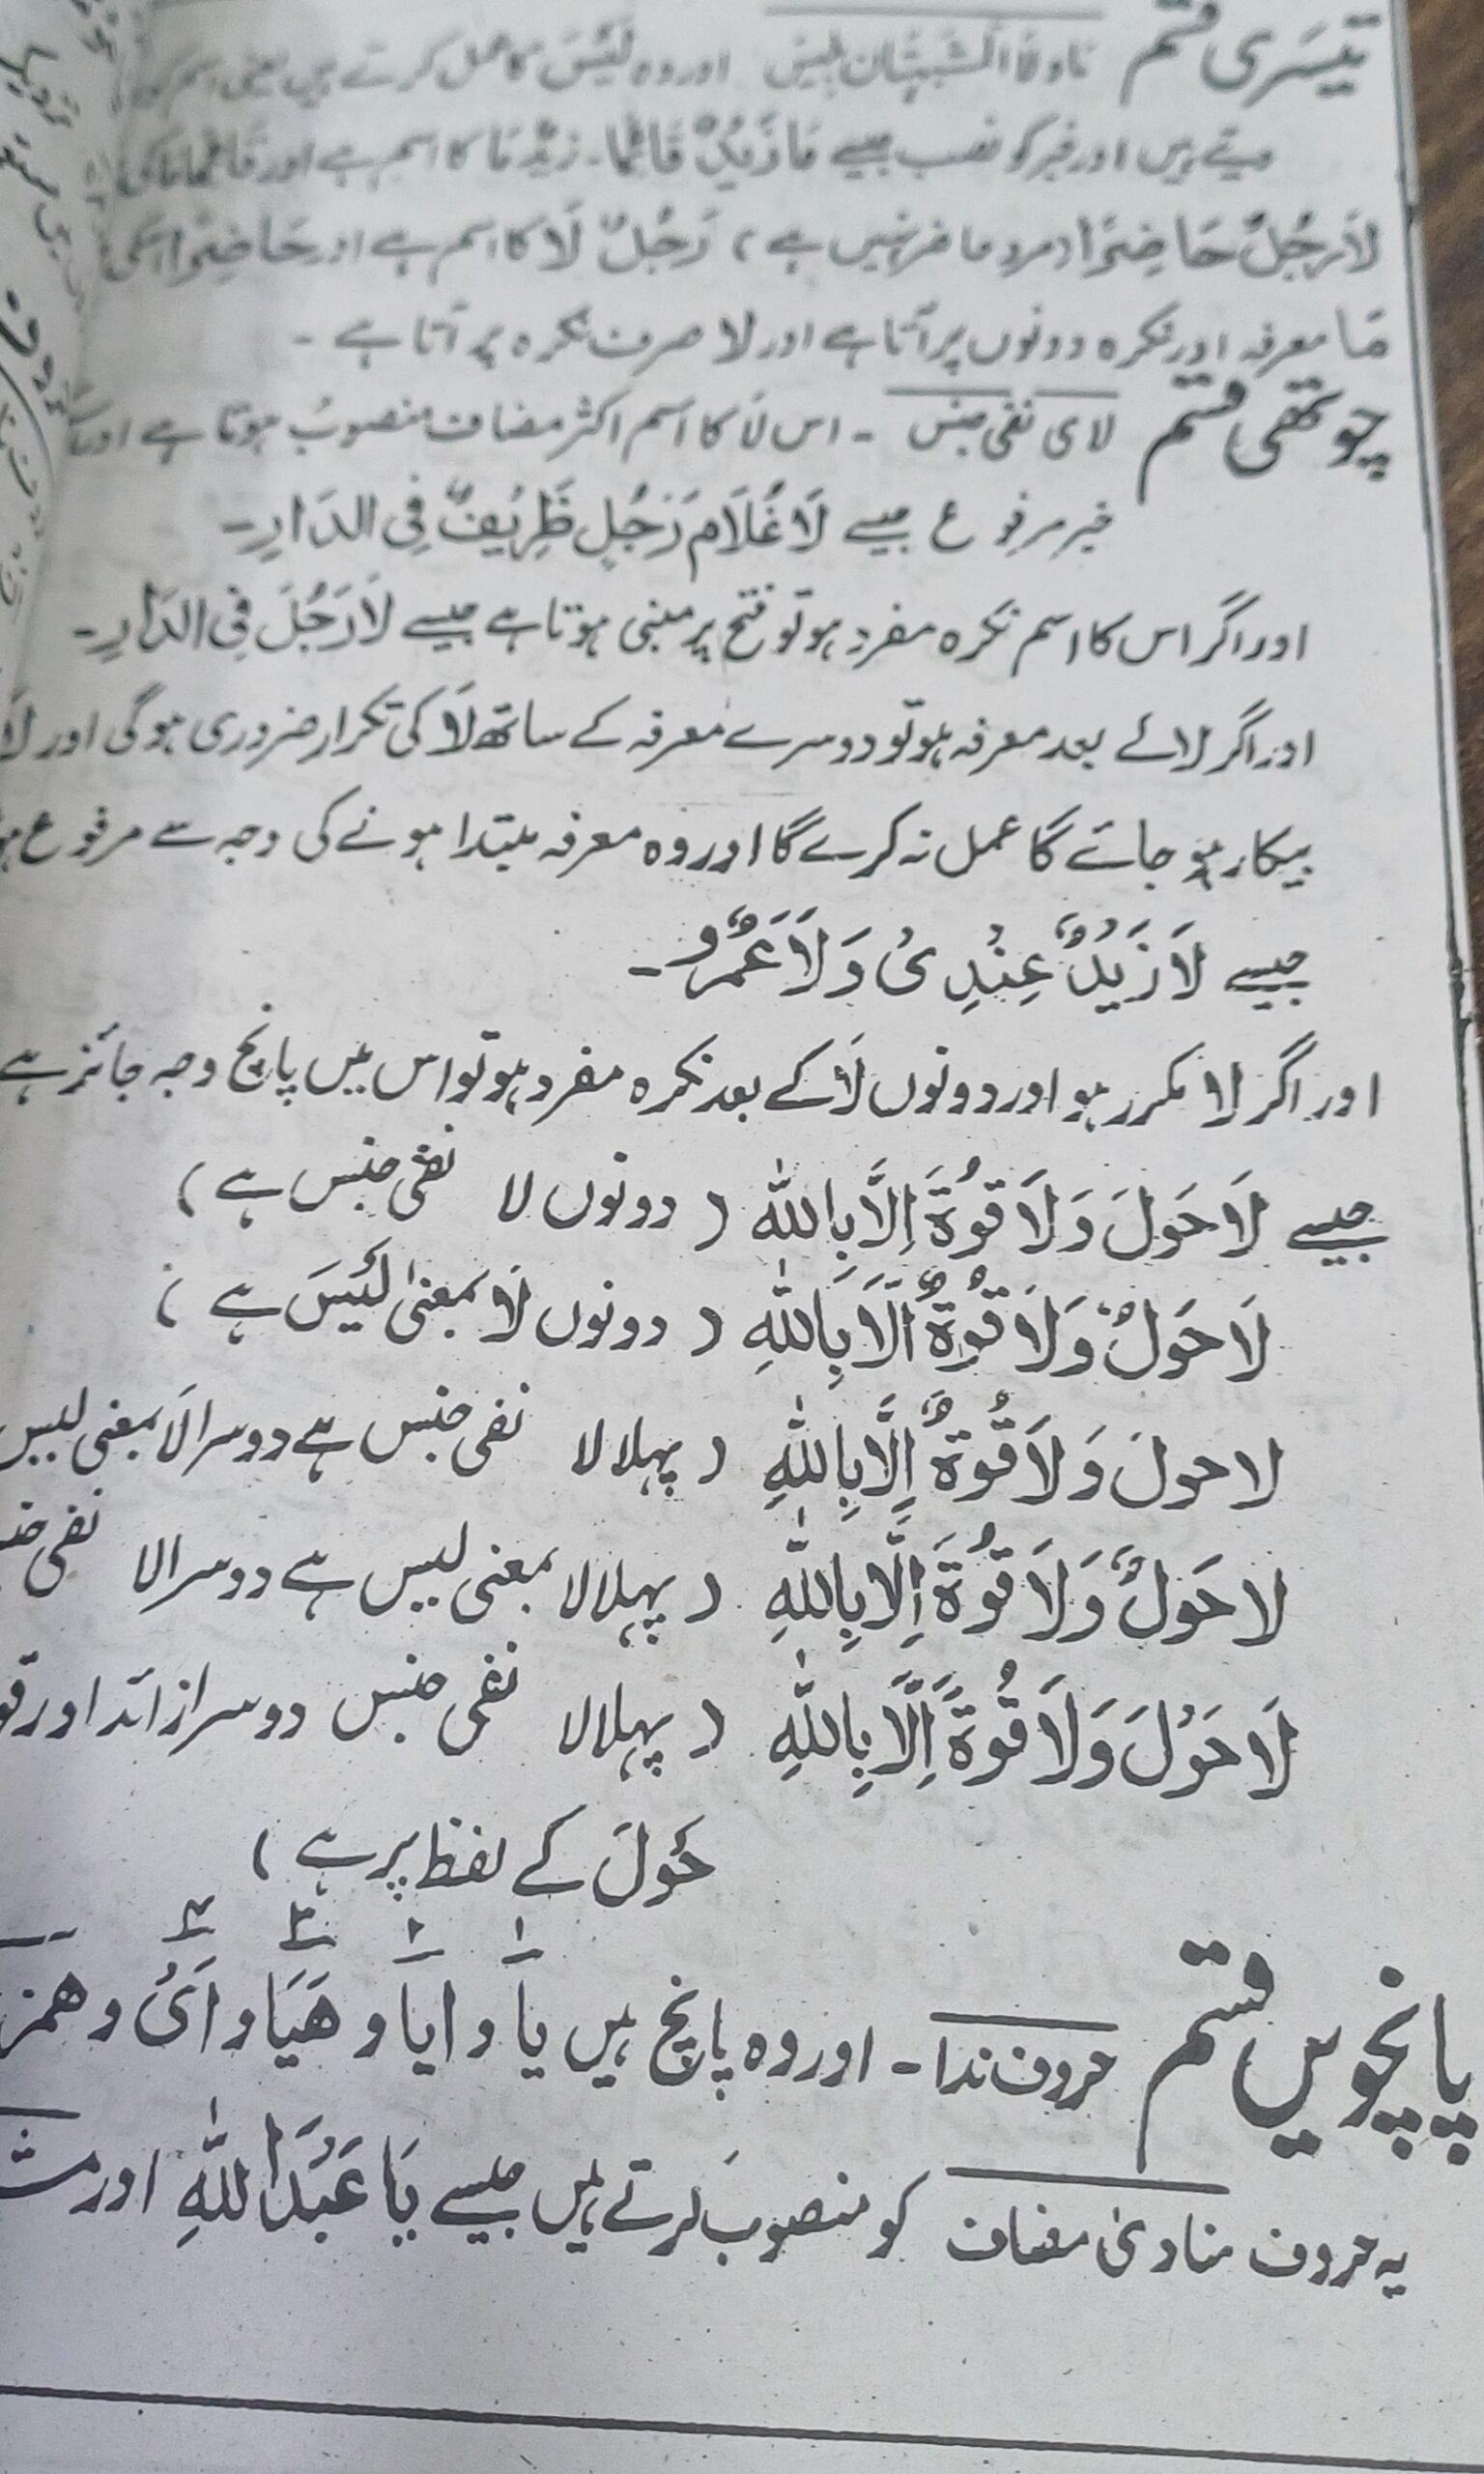 تیسری قسم ما ولا المشبہتان بلیس اور وہ لَیْسَ کا عمل کرتے ہیں یعنی اسم کو
دیتے ہیں اور خبر کو نصب جیسے مَا زَیْدٌ قَائِمًا۔ زَیْدٌ مَا کا اسم ہے اور قَائِمًا مَا کی
لَا رَجُلٌ حَاضِرًا (مرد حاضر نہیں ہے) رَجُلٌ لَا کا اسم ہے اور حَاضِرًا اسکی
مَا معرفہ اور نکرہ دونوں پر آتا ہے اور لا صرف نکرہ پر آتا ہے ۔
چوتھی قسم لای نفی جنس ۔ اس لَا کا اسم اکثر مضاف منصوب ہوتا ہے اور
خبر مرفوع جیسے لَا غُلَامَ رَجُلٍ ظَرِیْفٌ فِی الدَّارِ۔
اور اگر اس کا اسم نکرہ مفرد ہو تو فتح پر مبنی ہوتا ہے جیسے لَا رَجُلَ فِی الدَّارِ۔
اور اگر لا کے بعد معرفہ ہو تو دوسرے معرفہ کے ساتھ لَا کی تکرار ضروری ہوگی اور لَا
بیکار ہو جائے گا عمل نہ کرے گا اور وہ معرفہ مبتدا ہونے کی وجہ سے مرفوع
جیسے لَا زَیْدٌ عِنْدِیْ وَلَا عَمْرٌو ۔
اور اگر لا مکرر ہو اور دونوں لَا کے بعد نکرہ مفرد ہو تو اس میں پانچ وجہ جائز ہے
جیسے لَا حَوْلَ وَلَا قُوَّةَ اِلَّا بِاللّٰہ (دونوں لا نفی جنس ہے)
لَا حَوْلٌ وَلَا قُوَّةٌ اِلَّا بِاللّٰہِ (دونوں لَا بمعنیٰ لَیْسَ ہے)
لا حولَ وَلَا قُوَّةٌ اِلَّا بِاللّٰہِ (پہلا لا نفی جنس ہے دوسرا لَا بمعنی لیس
لا حَوْلٌ وَلَا قُوَّةَ اِلَّا بِاللّٰہِ (پہلا لا بمعنی لیس ہے دوسرا لا نفی
لَا حَوْلَ وَلَا قُوَّةً اِلَّا بِاللّٰہِ (پہلا لا نفی جنس دوسرا زائد اور
حَوْلَ کے لفظ پر ہے)
۱ ۲ ۳ ۴
پانچویں قسم حروف ندا ۔ اور وہ پانچ ہیں یَا و ایَا و ھَیَا و اَیْ و
یہ حروف منادیٰ مضاف کو منصوب کرتے ہیں جیسے یَا عَبْدَ اللّٰہِ اور